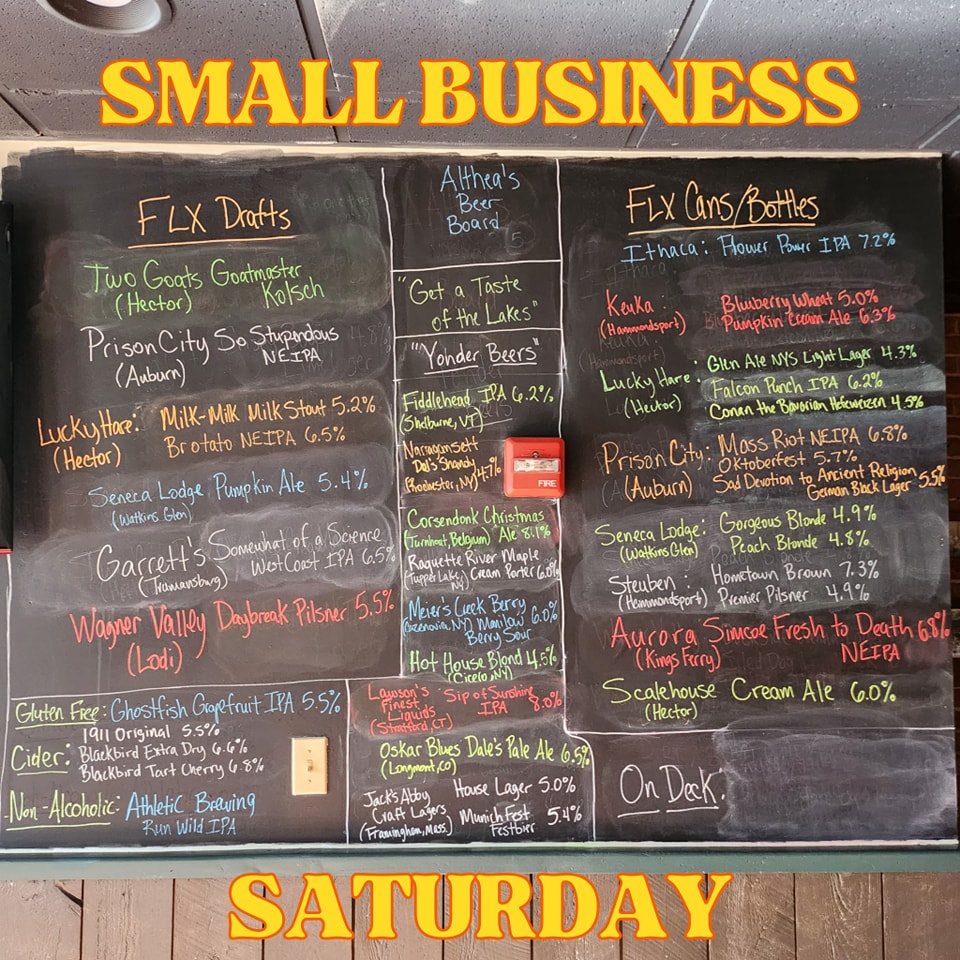 SMALL BUSINESS
FLX Drafts
Two Goats Goatmaster
(Hector) Kolsch
Prison City So Stupendous
(Auburn) NEIPA
Lucky Hare: Milk-Milk Milk Stout 5.2%
(Hector) Brotato NEIPA 6.5%
Seneca Lodge Pumpkin Ale 5.4%
(Watkins Glen)
Garrett's Somewhat of a Science
(Trumansburg) West Coast IPA 6.5%
Wagner Valley Daybreak Pilsner 5.5%
(Lodi)
Gluten Free: Ghostfish Grapefruit IPA 5.5%
1911 Original 5.5%
Cider: Blackbird Extra Dry 6.6%
Blackbird Tart Cherry 6.8%
Non-Alcoholic: Athletic Brewing
Run Wild IPA
Althea's
Beer
Board
"Get a Taste
of the Lakes"
"Yonder Beers"
Fiddlehead IPA 6.2%
(Shelburne, VT)
Narragansett
Del's Shandy
(Rochester, NY) 4.7%
FIRE
Corsendonk Christmas
(Turnhout, Belgium) Ale 8.1%
Raquette River Maple
(Tupper Lake, NY) Cream Porter 6.0%
Meier's Creek Berry
(Cazenovia, NY) Manilow 6.0%
Berry Sour
Hot House Blond 4.5%
(Cicero, NY)
Lawson's Sip of Sunshine
Finest IPA 8.0%
Liquids
(Stratford, CT)
Oskar Blues Dale's Pale Ale 6.5%
(Longmont, CO)
Jack's Abby House Lager 5.0%
Craft Lagers Munich Fest 5.4%
(Framingham, Mass.) Festbier
FLX Cans/Bottles
Ithaca: Flower Power IPA 7.2%
Keuka: Blueberry Wheat 5.0%
(Hammondsport) Pumpkin Cream Ale 6.3%
Lucky Hare: Glen Ale NYS Light Lager 4.3%
(Hector) Falcon Punch IPA 6.2%
Conan the Bavarian Hefeweizen 4.5%
Prison City: Mass Riot NEIPA 6.8%
(Auburn) Oktoberfest 5.7%
Sad Devotion to Ancient Religion
German Black Lager 5.5%
Seneca Lodge: Gorgeous Blonde 4.9%
(Watkins Glen) Peach Blonde 4.8%
Steuben: Hometown Brown 7.3%
(Hammondsport) Premier Pilsner 4.9%
Aurora Simcoe Fresh to Death 6.8%
(Kings Ferry) NEIPA
Scalehouse Cream Ale 6.0%
(Hector)
On Deck:
SATURDAY